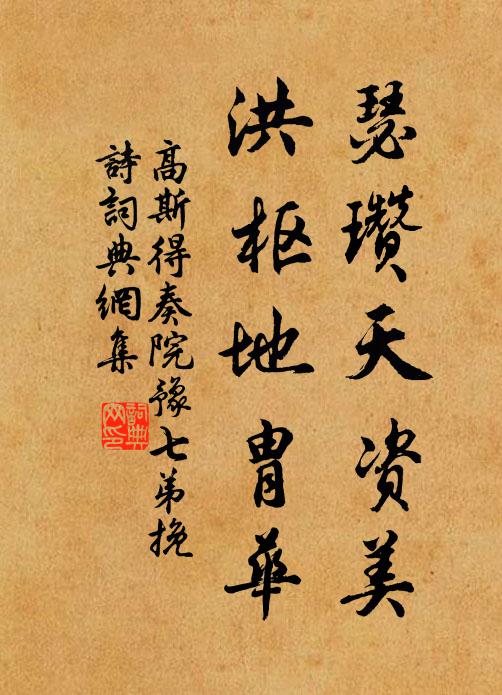 瑟瓚天资美
洪枢地胄華
高斯得奏院豫七弟挽
詩詞典網集
詞典
网印